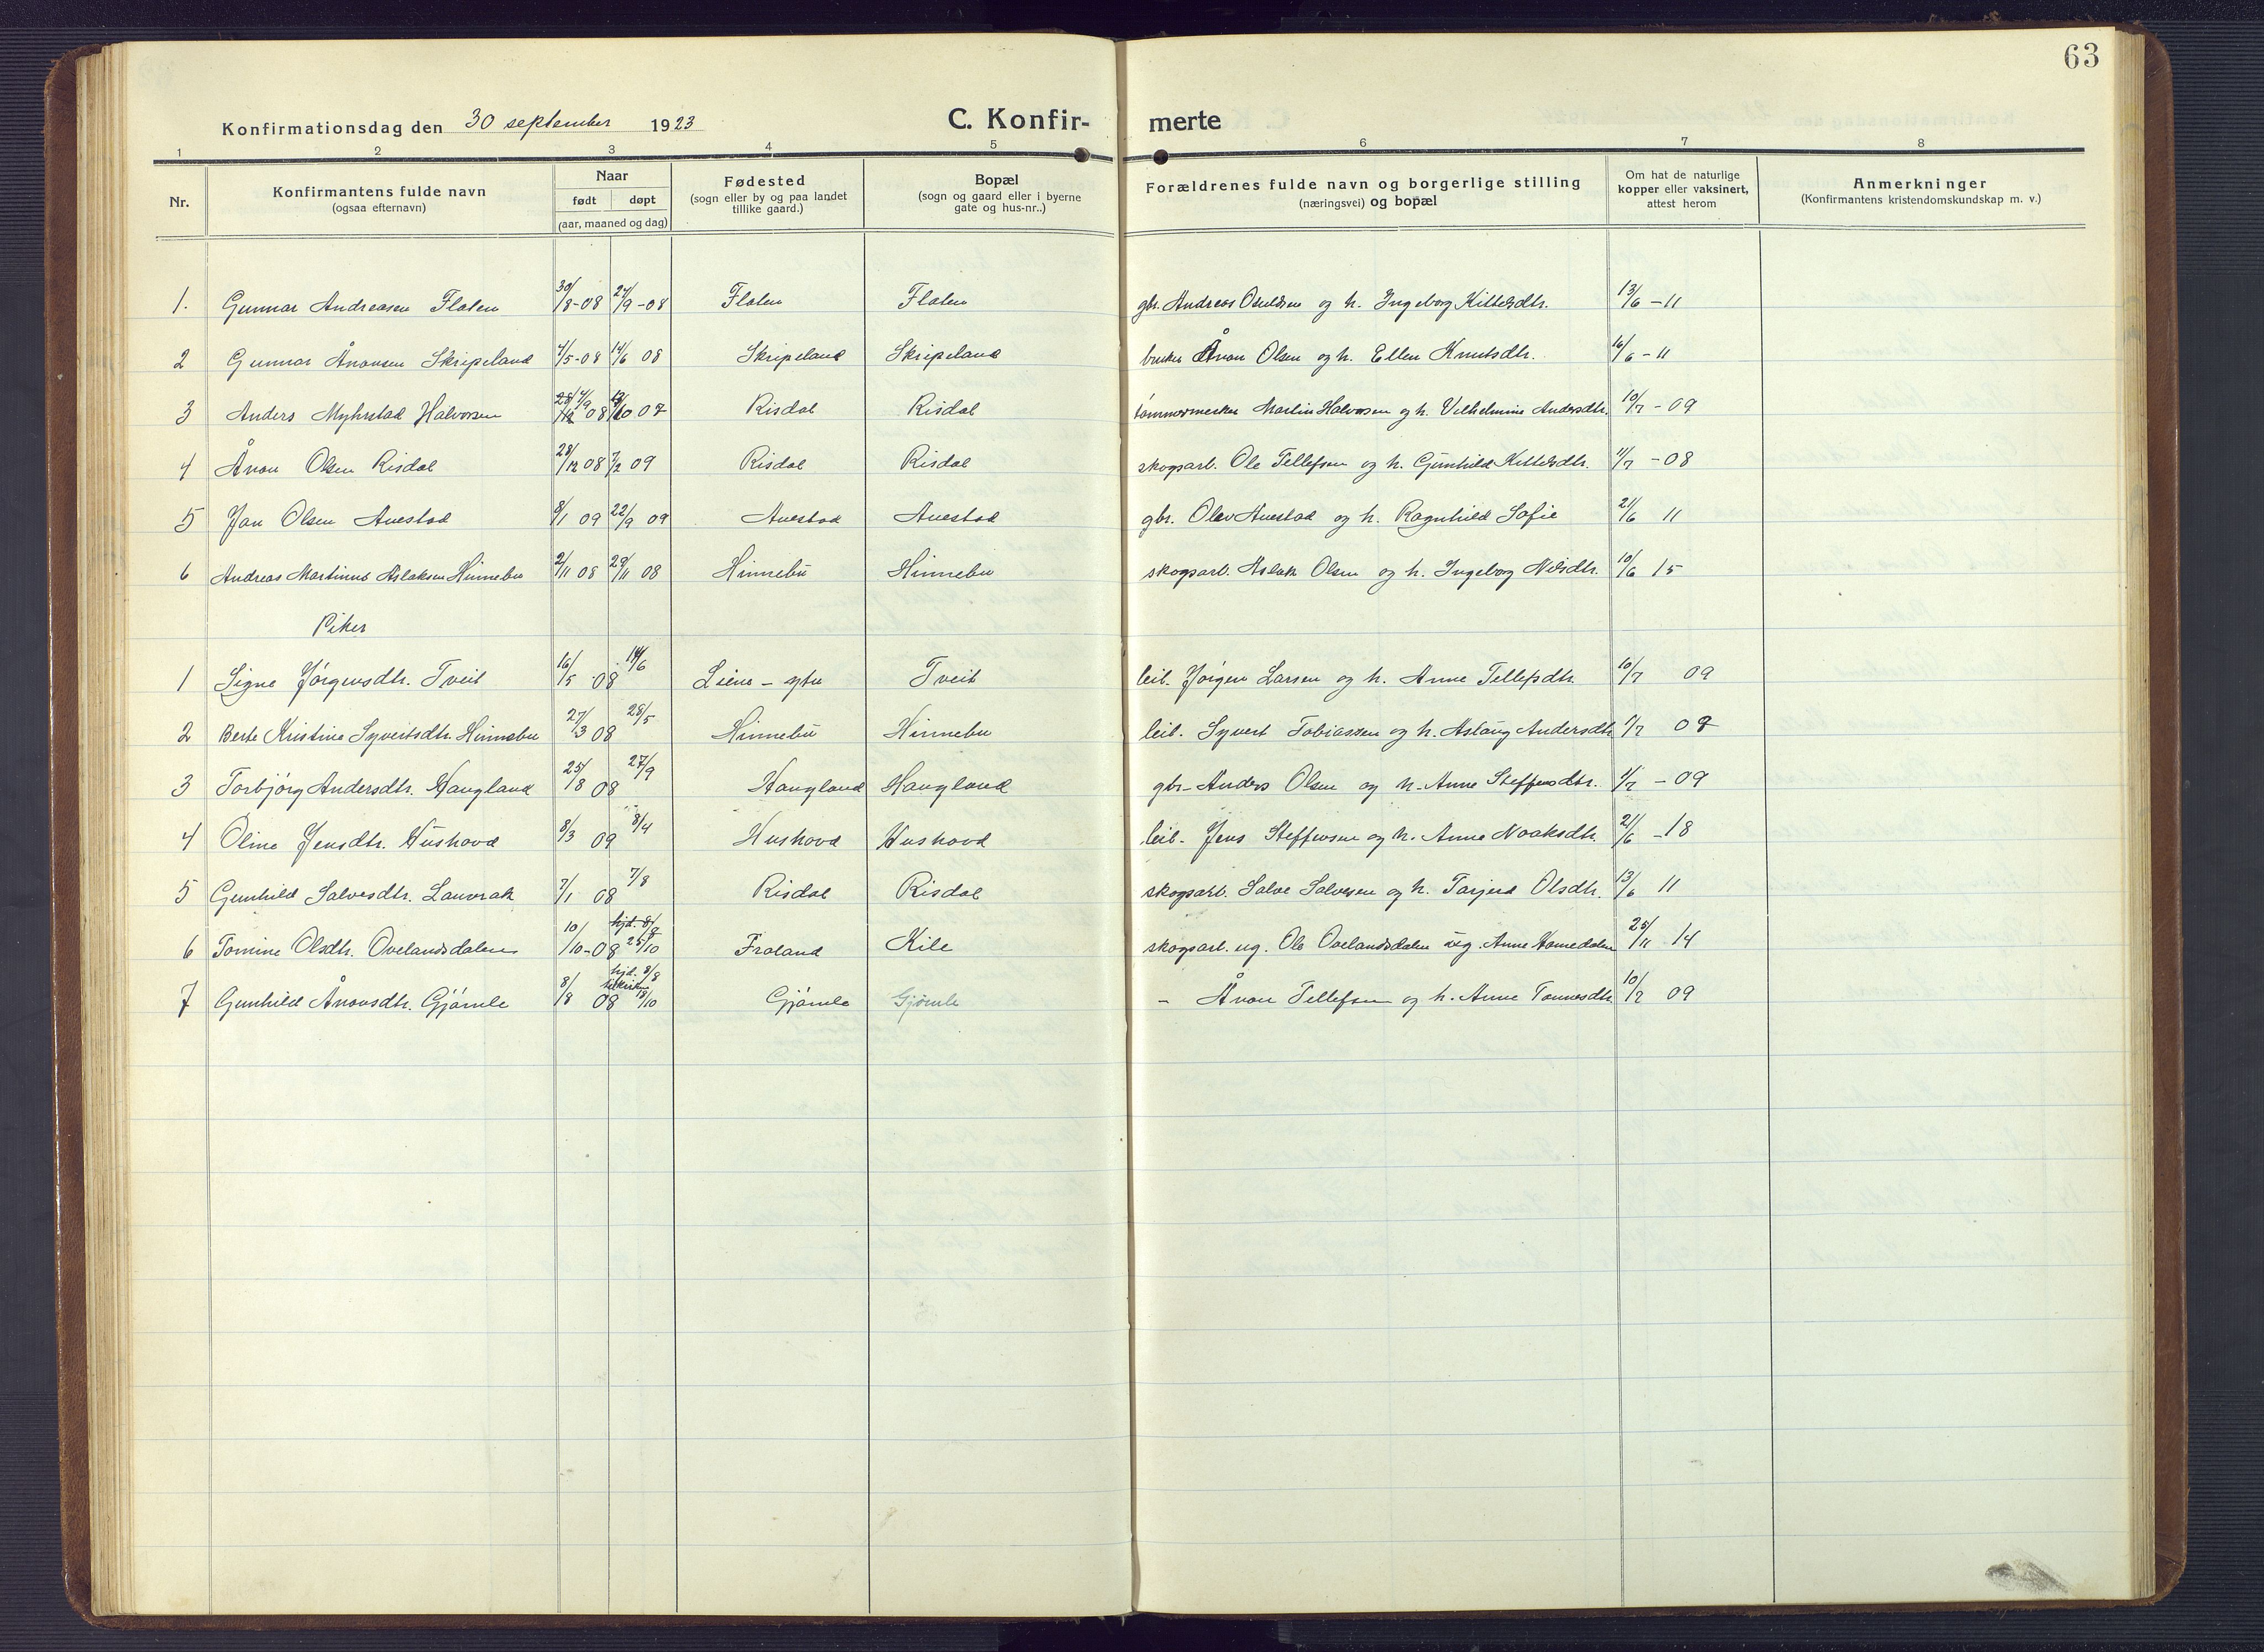 63
Konfirmationsdag den 30 september 1923 C. Konfir- merte
1 2 3 4 5 6 7 8
Nr. Konfirmantens fulde navn (ogsaa efternavn) Naar født døpt (aar, maaned og dag) Fødested (sogn eller by og paa landet tillike gaard.) Bopæl (sogn og gaard eller i byerne gate og hus-nr..) Forældrenes fulde navn og borgerlige stilling (næringsvei) og bopæl Om hat de naturlige kopper eller vaksinert, attest herom Anmerkninger (Konfirmantens kristendomskundskap m. v.)
1. Gunnar Andreasen Flaten 30/8-08 27/9-08 Flaten Flaten gbr. Andreas Osuldsen og h. Ingeborg Kittelsdtr. 13/6-11
2 Gunnar Ånonsen Skripeland 4/5-08 14/6 08 Skripeland Skripeland bruker Ånon Olsen og h. Ellen Knutsdtr. 16/6-11
3 Anders Myhrstad Halvorsen 08 Risdal Risdal tømmermerker Martin Halvorsen og h. Vilhelmine Andersdtr. 10/7-09
4 Ånon Olsen Risdal 28/12 08 7/2 09 Risdal Risdal skogsarb. Ole Tellefsen og h. Gunhild Kittelsdtr. 11/7-08
5 Jan Olsen Auestad 8/1 09 22/9 09 Auestad Auestad gbr. Olav Auestad og h. Ragnhild Sofie 21/6 11
6 Andreas Martinus Aslaksen Hinnebu 2/11 08 29/11 08 Hinnebu Hinnebu skogsarb. Aslak Olsen og h. Ingeborg Nilsdtr. 10/6 15
Piker
1 Signe Jørgensdtr. Tveit 16/5 08 14/6 Liene - Tveit leil. Jørgen Larsen og h. Anne Tellefsdtr. 10/7 09
2 Berte Kristine Syvertsdtr. Hinnebu 27/3 08 28/5 Hinnebu Hinnebu leil. Syvert Tobiassen og h. Aslaug Andersdtr.
3 Torbjørg Andersdtr. Haugland 25/8 08 27/9 Haugland Haugland gbr. Anders Olsen og h. Anne Steffensdtr. 1/7-09
4 Oline Jensdtr. Hushovd 8/3 09 8/4 Hushovd Hushovd leil. Jens Steffensen og h. Anne Noaksdtr. 21/6-18
5 Gunhild Salvesdtr. Lauvrak 7/1 08 7/8 Risdal Risdal skogsarb. Salve Salvesen og h. Tarjerd Olsdtr. 13/6 11
6 Tomine Olsdtr. Ovelandsdalen 10/10-08 25/10 Froland Kile skogsarb. ug. Ole Ovelandsdalen ug. Anne Homedalen 25/11 14
7 Gunhild Ånonsdtr. Gjømle 8/8 08 hjd. 8/8 18/10 Gjømle Gjømle - Ånon Tellefsen og h. Anne Tonnesdtr. 10/7 09